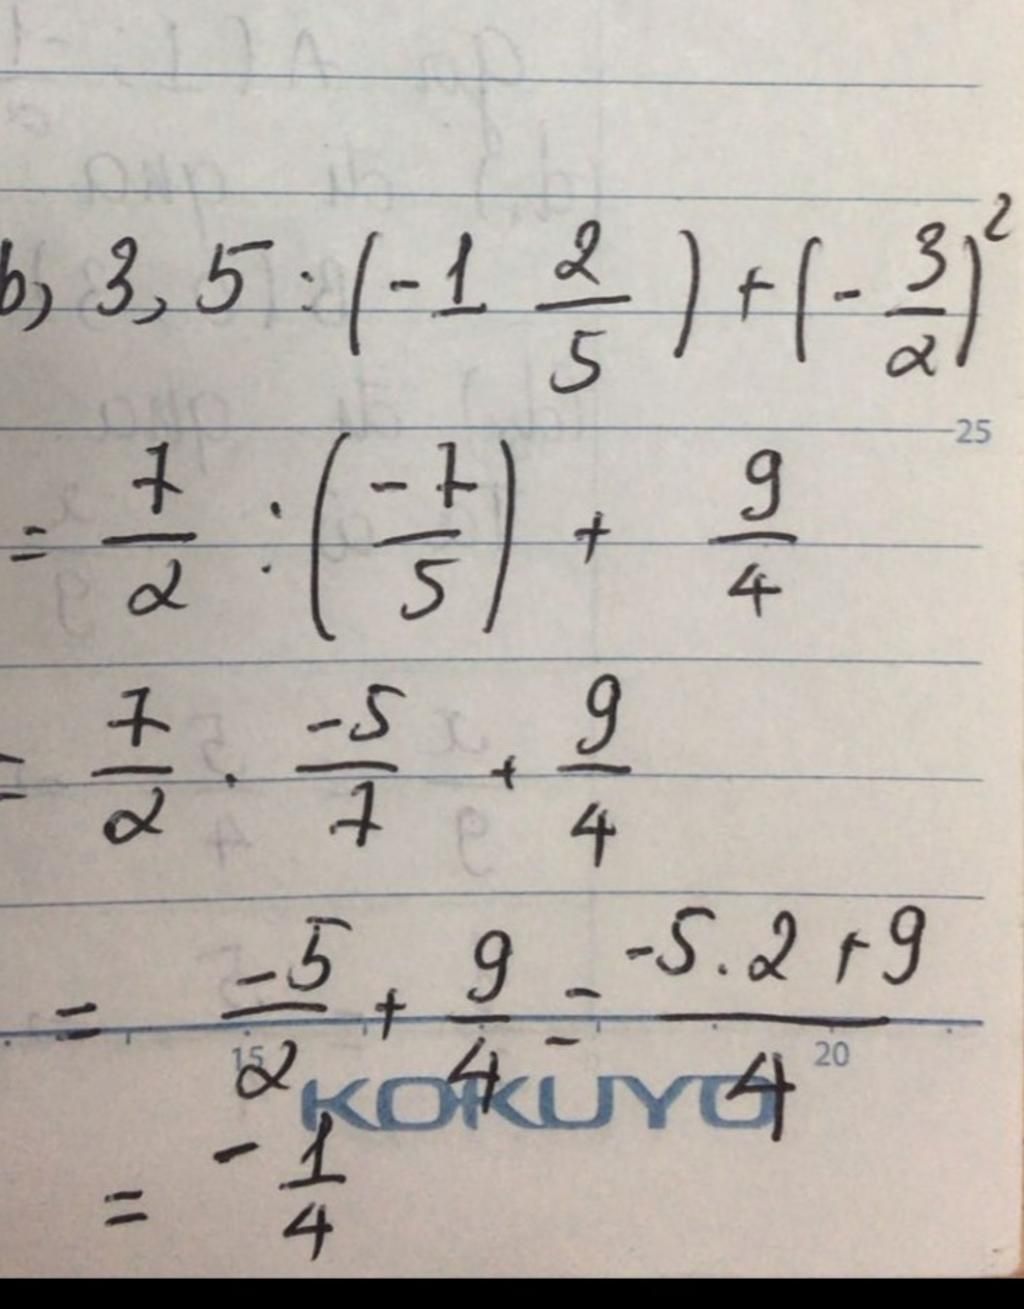 b, 3,5 : (-1 2/5) + (-3/2)²
25
= 7/2 : (-7/5) + 9/4
= 7/2 . -5/7 + 9/4
= -5/2 + 9/4 = -5.2+9/4
15 20
KOKUYO
= -1/4